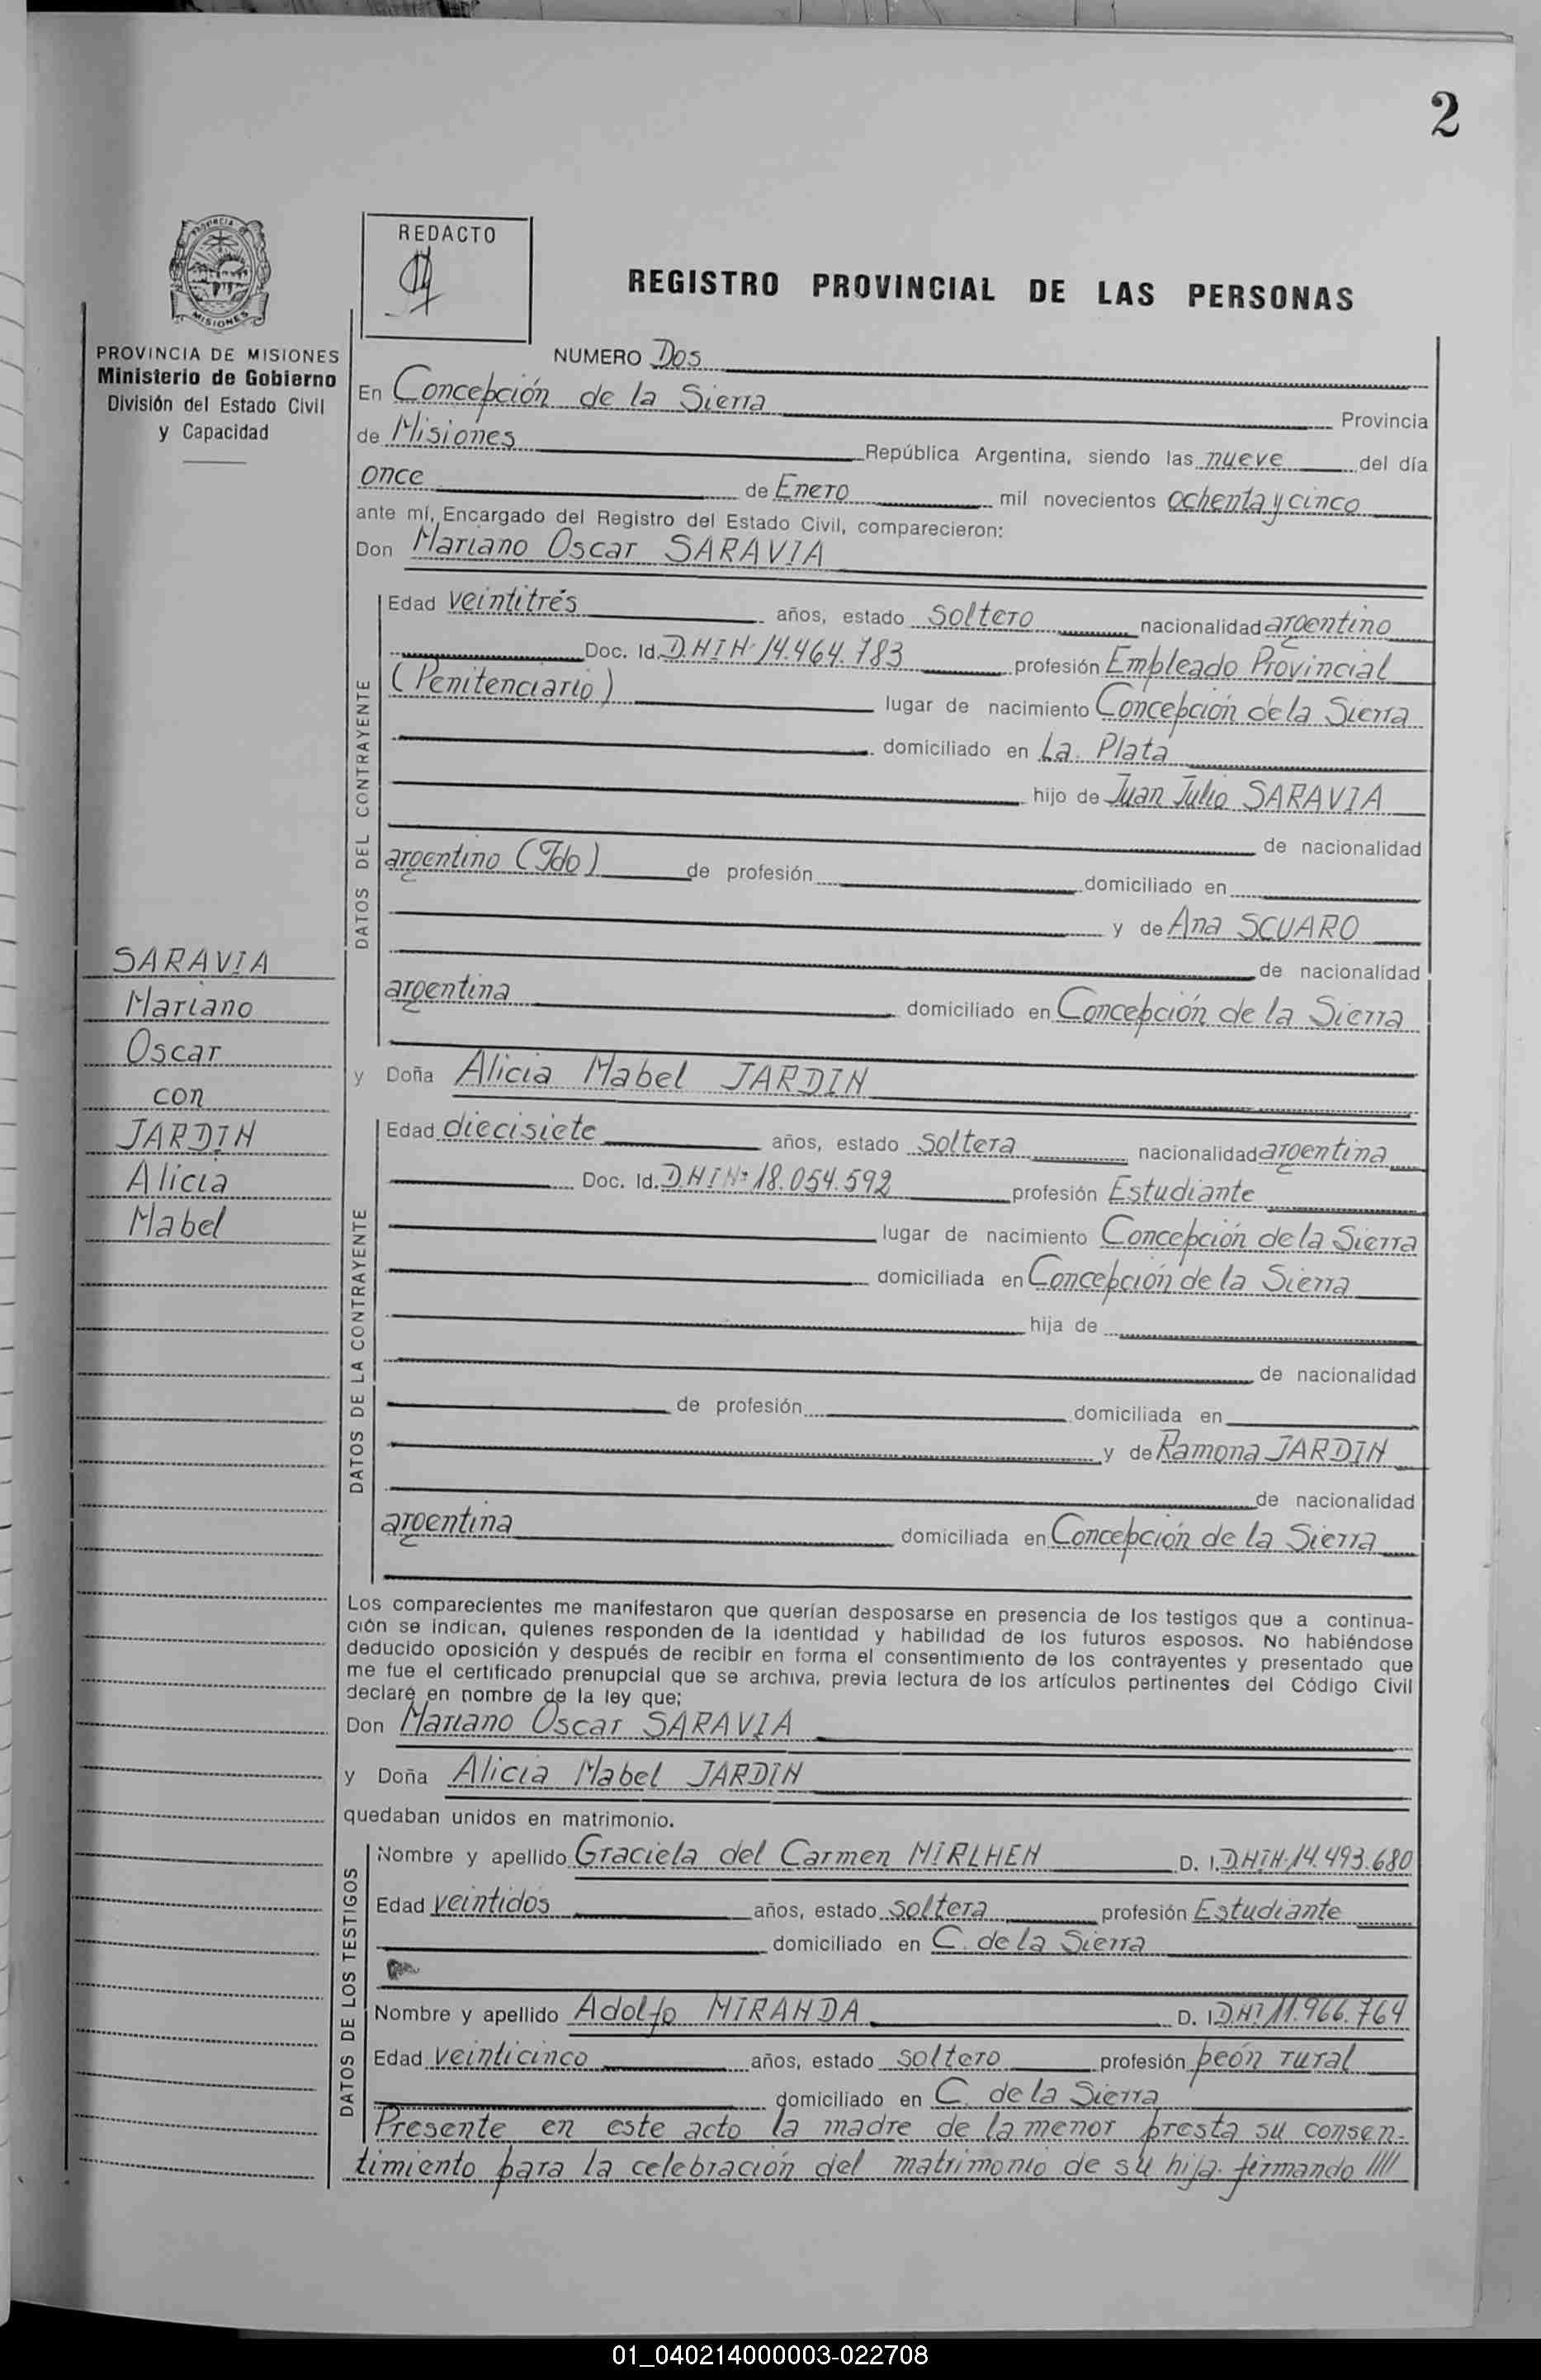 2
PROVINCIA DE
MISIONES
REDACTO
REGISTRO PROVINCIAL DE LAS PERSONAS
PROVINCIA DE MISIONES
Ministerio de Gobierno
División del Estado Civil
y Capacidad
NUMERO Dos
En Concepción de la Sierra Provincia
de Misiones República Argentina, siendo las nueve del día
once de Enero mil novecientos ochenta y cinco
ante mí, Encargado del Registro del Estado Civil, comparecieron:
Don Mariano Oscar SARAVIA
DATOS DEL CONTRAYENTE
Edad veintitrés años, estado soltero nacionalidad argentino
Doc. Id. DNI N° 14.464.783 profesión Empleado Provincial
(Penitenciario) lugar de nacimiento Concepción de la Sierra
domiciliado en La Plata
hijo de Juan Julio SARAVIA
de nacionalidad
argentino (Fdo) de profesión domiciliado en
y de Ana SCUARO
de nacionalidad
argentina domiciliado en Concepción de la Sierra
y Doña Alicia Mabel JARDIN
SARAVIA
Mariano
Oscar
con
JARDIN
Alicia
Mabel
DATOS DE LA CONTRAYENTE
Edad diecisiete años, estado soltera nacionalidad argentina
Doc. Id. DNI N° 18.054.592 profesión Estudiante
lugar de nacimiento Concepción de la Sierra
domiciliada en Concepción de la Sierra
hija de
de nacionalidad
de profesión domiciliada en
y de Ramona JARDIN
de nacionalidad
argentina domiciliada en Concepción de la Sierra
Los comparecientes me manifestaron que querían desposarse en presencia de los testigos que a continua-
ción se indican, quienes responden de la identidad y habilidad de los futuros esposos. No habiéndose
deducido oposición y después de recibir en forma el consentimiento de los contrayentes y presentado que
me fue el certificado prenupcial que se archiva, previa lectura de los artículos pertinentes del Código Civil
declaré en nombre de la ley que;
Don Mariano Oscar SARAVIA
y Doña Alicia Mabel JARDIN
quedaban unidos en matrimonio.
DATOS DE LOS TESTIGOS
Nombre y apellido Graciela del Carmen MIRLHEN D. I. DNI N° 14.493.680
Edad veintidos años, estado soltera profesión Estudiante
domiciliado en C. de la Sierra
Nombre y apellido Adolfo MIRANDA D. I. DNI 11.966.764
Edad veinticinco años, estado soltero profesión peón rural
domiciliado en C. de la Sierra
Presente en este acto la madre de la menor presta su consen-
timiento para la celebración del matrimonio de su hija. firmando /////
01_040214000003-022708